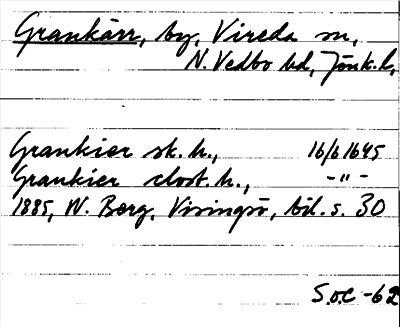 Grankärr, by, Vireda sn,
N. Vedbo hd, Jönk. l,
Grankier sk. h., 16/6 1645
Grankier clost. h., -"-
1885, W. Berg, Visingsö, bil. s. 30
S.o.C -62